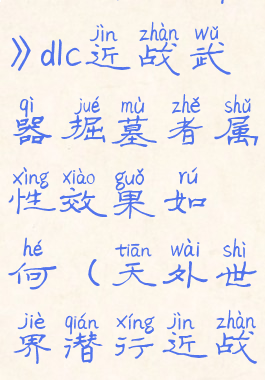 jìn zhàn wǔ
》dlc近战武
qì jué mù zhě shǔ
器掘墓者属
xìng xiào guǒ rú
性效果如
hé tiān wài shì
何（天外世
jiè qián xíng jìn zhàn
界潜行近战